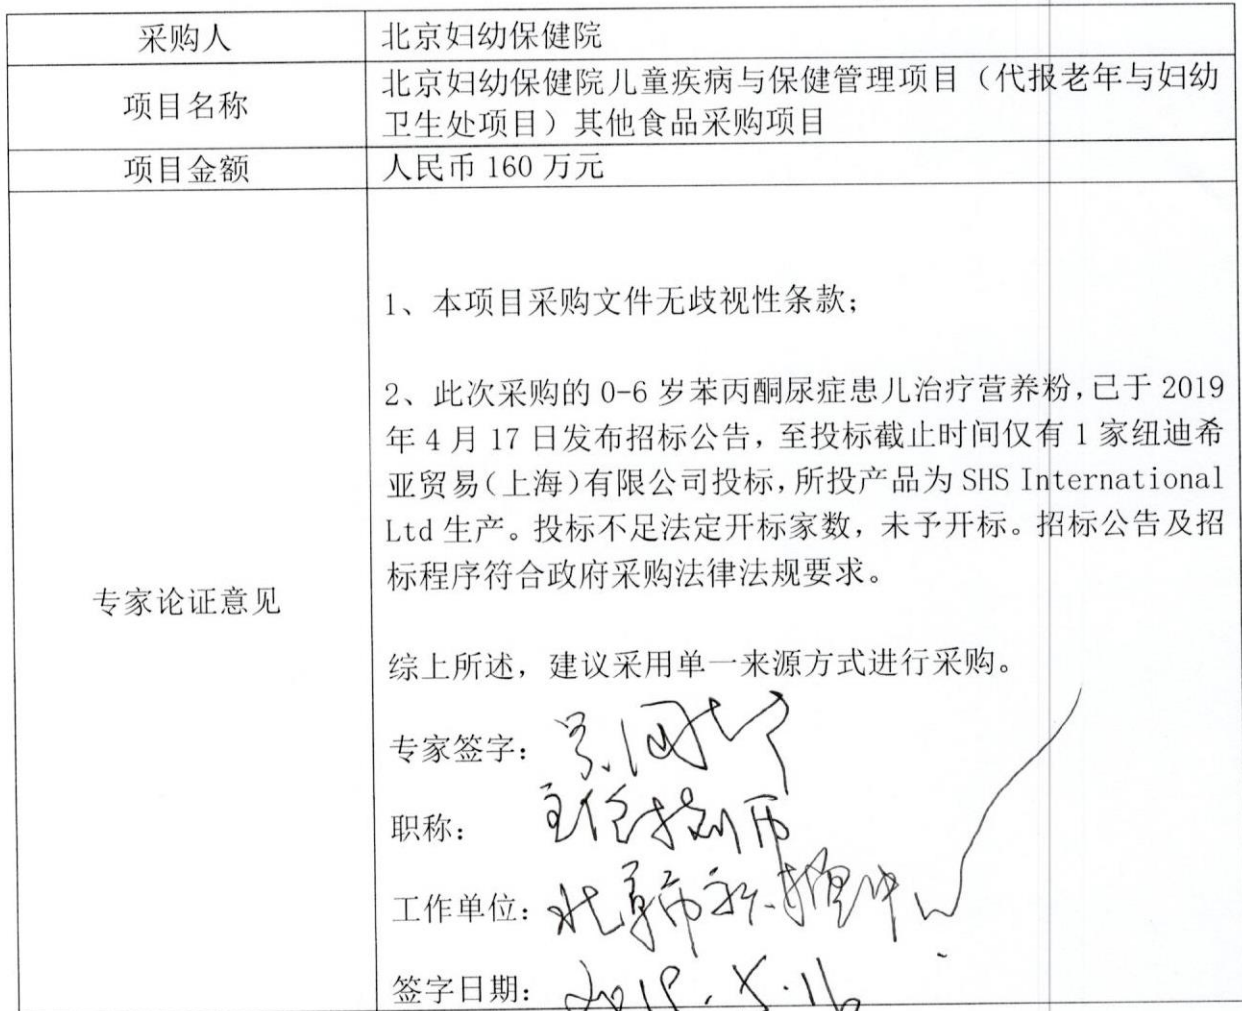 采购人
北京妇幼保健院
项目名称
北京妇幼保健院儿童疾病与保健管理项目（代报老年与妇幼
卫生处项目）其他食品采购项目
项目金额
人民币 160 万元
专家论证意见
1、本项目采购文件无歧视性条款；
2、此次采购的 0-6 岁苯丙酮尿症患儿治疗营养粉，已于 2019
年 4 月 17 日发布招标公告，至投标截止时间仅有 1 家纽迪希
亚贸易（上海）有限公司投标，所投产品为 SHS International
Ltd 生产。投标不足法定开标家数，未予开标。招标公告及招
标程序符合政府采购法律法规要求。
综上所述，建议采用单一来源方式进行采购。
专家签字：
职称：主任技师
工作单位：
签字日期：